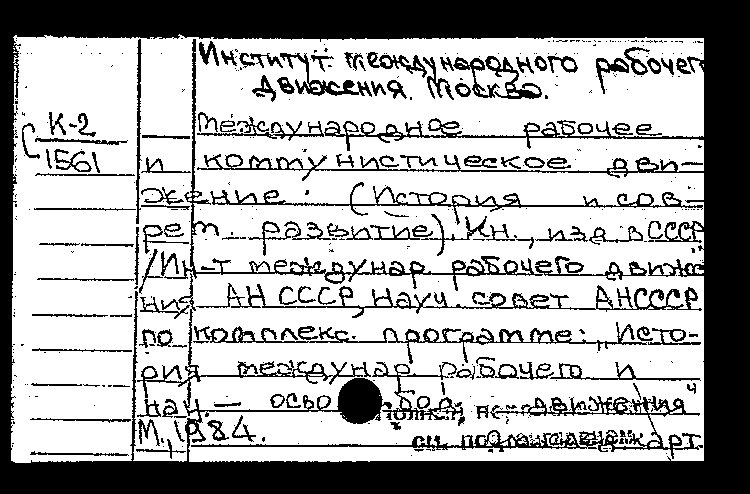 Институт международного рабочег
движения. Москва.
К-2
1561
Международное рабочее
и коммунистическое дви-
жение: (История и сов-
рем. развитие). Кн., изд в СССР
/Ин-т междунар. рабочего движе
ния АН СССР, Науч. совет АН СССР
по комплекс. программе: „Исто-
рия междунар. рабочего и
нац.- осво бод. движения"
М., 1984.
см. карт.